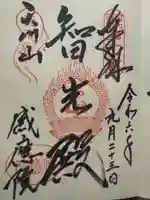 奉拝
令和六年
九月二十三日
智光殿
感應院